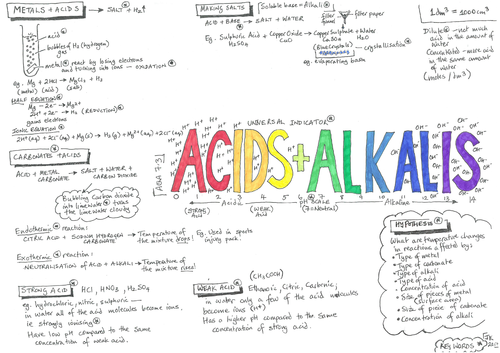 METALS + ACIDS → SALT + H₂↑
acid
bubbles of H₂ (hydrogen)
gas
metal
react by losing electrons
and turning into ions - OXIDATION
eg. Mg + 2HCl → MgCl₂ + H₂
(metal) (acid) (salt)
HALF EQUATION
Mg - 2e⁻ → Mg²⁺
2H⁺ + 2e⁻ → H₂ (REDUCTION)
gains electrons
IONIC EQUATION
CARBONATES + ACIDS
ACID + METAL CARBONATE → SALT + WATER + CARBON DIOXIDE
Bubbling Carbon dioxide
into limewater turns
the limewater cloudy
Endothermic reaction:
CITRIC ACID + SODIUM HYDROGEN CARBONATE → Temperature of the mixture drops!
Eg. Used in sports
injury pack.
Exothermic reaction:
NEUTRALISATION of ACID + ALKALI → Temperature of the mixture rises!
STRONG ACID
HCl, HNO₃, H₂SO₄
eg. hydrochloric, nitric, sulphuric
in water all of the acid molecules become ions,
ie strongly ionising
Have low pH compared to the same
concentration of weak acid.
MAKING SALTS
Soluble base = Alkali
ACID + BASE → SALT + WATER
Eg. Sulphuric Acid + Copper Oxide → Copper Sulphate + Water
H₂SO₄ CuO CuSO₄ H₂O
filter funnel
filter paper
crystallisation
eg. evaporating basin
UNIVERSAL INDICATOR
ACIDS + ALKALIS
0 1 2 3 4 5 6 7 8 9 10 11 12 13 14
(STRONG) Acid
Acidic
(WEAK) Acid
pH SCALE
(7 = Neutral)
Alkaline
WEAK ACID
(CH₃COOH)
Ethanoic, Citric, Carbonic;
in water only a few of the acid molecules
become ions (H⁺)
Has a higher pH compared to the same
concentration of strong acid.
1dm³ = 1000cm³
Dilute - not much
acid in the amount of
water
Concentrated - more acid
in the same amount
of water
(moles / dm³)
HYPOTHESIS
What are temperature changes
in reactions affected by:
• Type of metal
• Type of carbonate
• Type of alkali
• Type of acid
• Concentration of acid
• Size of pieces of metal
(Surface area)
• Size of piece of carbonate
• Concentration of alkali
KEY WORDS